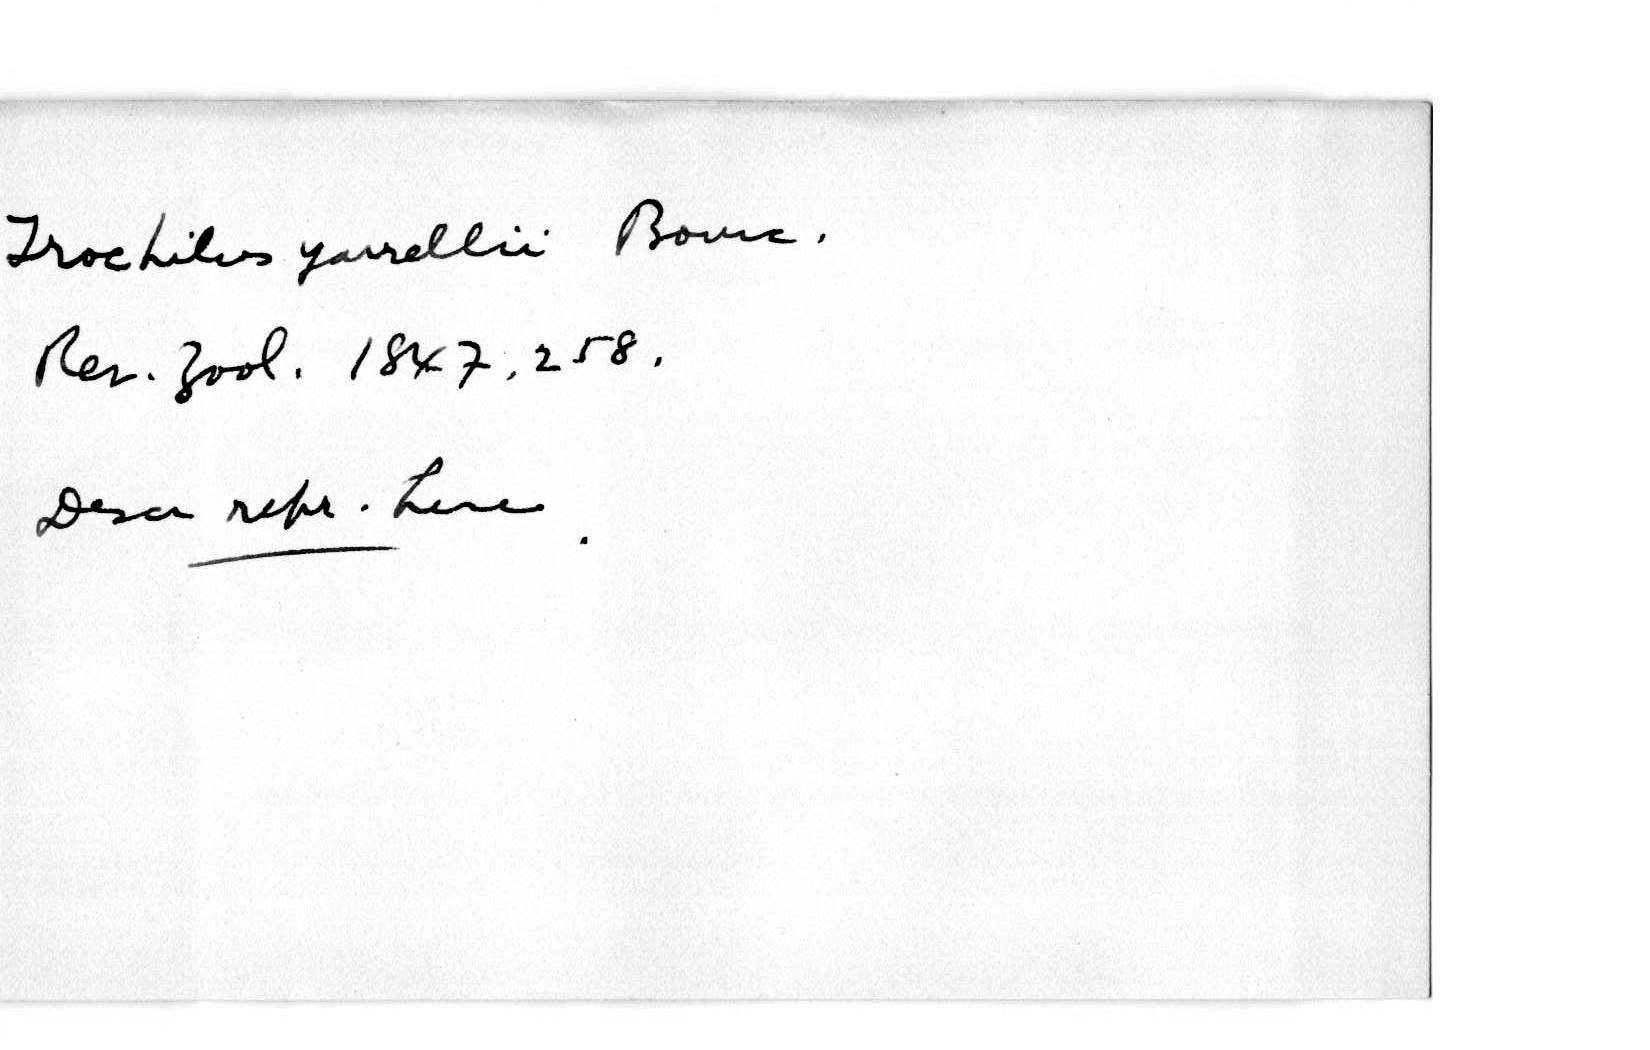 Trochilus yarrellii Bourc.
Rev. Zool. 1847, 258.
Descr repr. here.